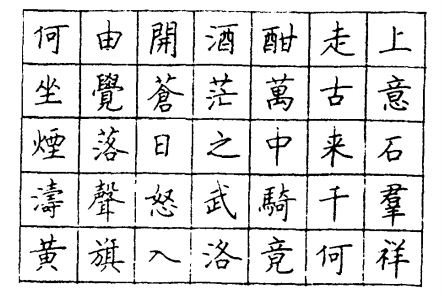 何由開酒酣走上
坐覺蒼茫萬古意
煙落日之中来石
濤聲怒武騎千羣
黄旗入洛竟何祥